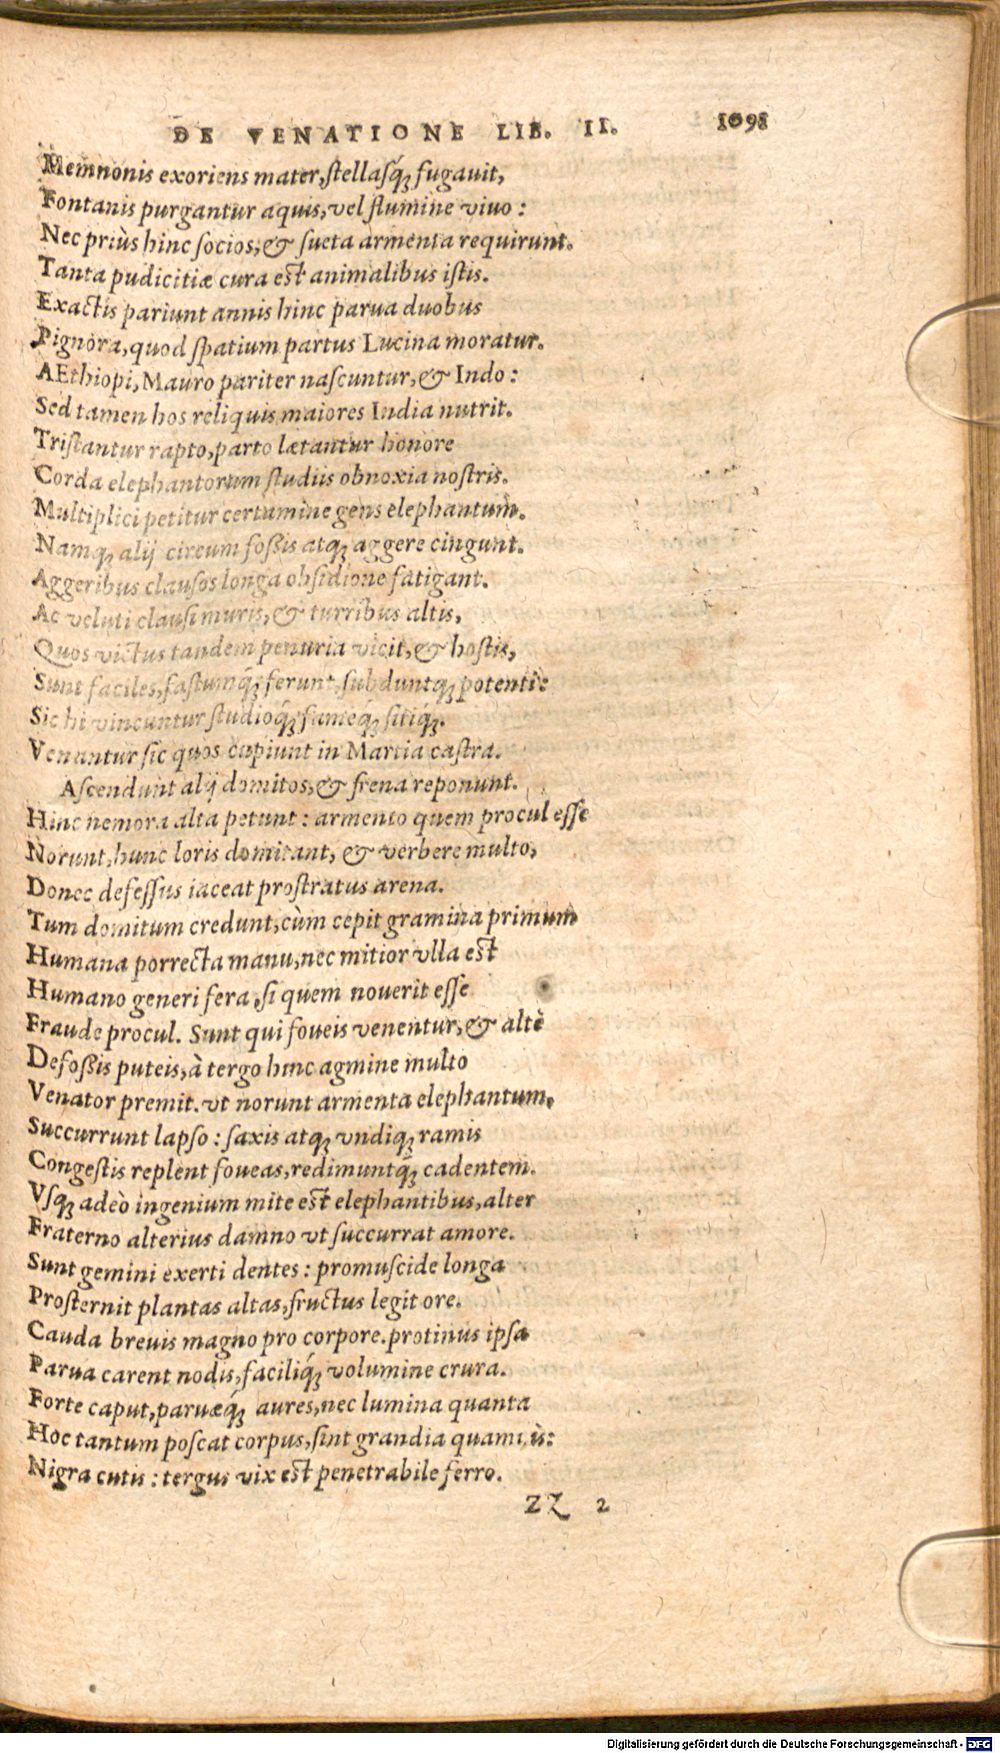 DE VENATIONE LIB. II. 1091
Memnonis exoriens mater, ſtellaſq́; fugauit,
Fontanis purgantur aquis, vel flumine viuo:
Nec priùs hinc ſocios, & ſueta armenta requirunt.
Tanta pudicitiæ cura eſt animalibus iſtis.
Exactis pariunt annis hinc parua duobus
Pignora, quod ſpatium partus Lucina moratur.
AEthiopi, Mauro pariter naſcuntur, & Indo:
Sed tamen hos reliquis maiores India nutrit.
Triſtantur rapto, parto lætantur honore
Corda elephantorum ſtudiis obnoxia noſtris.
Multiplici petitur certamine gens elephantum.
Namq; alij circum foſſis atq; aggere cingunt.
Aggeribus clauſos longa obſidione fatigant.
Ac veluti clauſi muris, & turribus altis,
Quos victus tandem penuria vicit, & hoſtis,
Sunt faciles, faſtumq́; ferunt, ſubduntq; potenti:
Sic hi vincuntur ſtudioq́; fameq́; ſitiq́;.
Venantur ſic quos capiunt in Martia caſtra.
Aſcendunt alij domitos, & frena reponunt.
Hinc nemora alta petunt: armento quem procul eſſe
Norunt, hunc loris domitant, & verbere multo,
Donec defeſſus iaceat proſtratus arena.
Tum domitum credunt, cùm cepit gramina primum
Humana porrecta manu, nec mitior vlla eſt
Humano generi fera, ſi quem nouerit eſſe
Fraude procul. Sunt qui foueis venentur, & altè
Defoſſis puteis, à tergo hinc agmine multo
Venator premit. vt norunt armenta elephantum,
Succurrunt lapſo: ſaxis atq; vndiq; ramis
Congeſtis replent foueas, redimuntq́; cadentem.
Vſq; adeò ingenium mite eſt elephantibus, alter
Fraterno alterius damno vt ſuccurrat amore.
Sunt gemini exerti dentes: promuſcide longa
Proſternit plantas altas, fructus legit ore.
Cauda breuis magno pro corpore. protinus ipſa
Parua carent nodis, faciliq́; volumine crura.
Forte caput, paruæq́; aures, nec lumina quanta
Hoc tantum poſcat corpus, ſint grandia quamuis:
Nigra cutis: tergus vix eſt penetrabile ferro.
ZZ 2
Digitalisierung gefördert durch die Deutsche Forschungsgemeinschaft - DFG